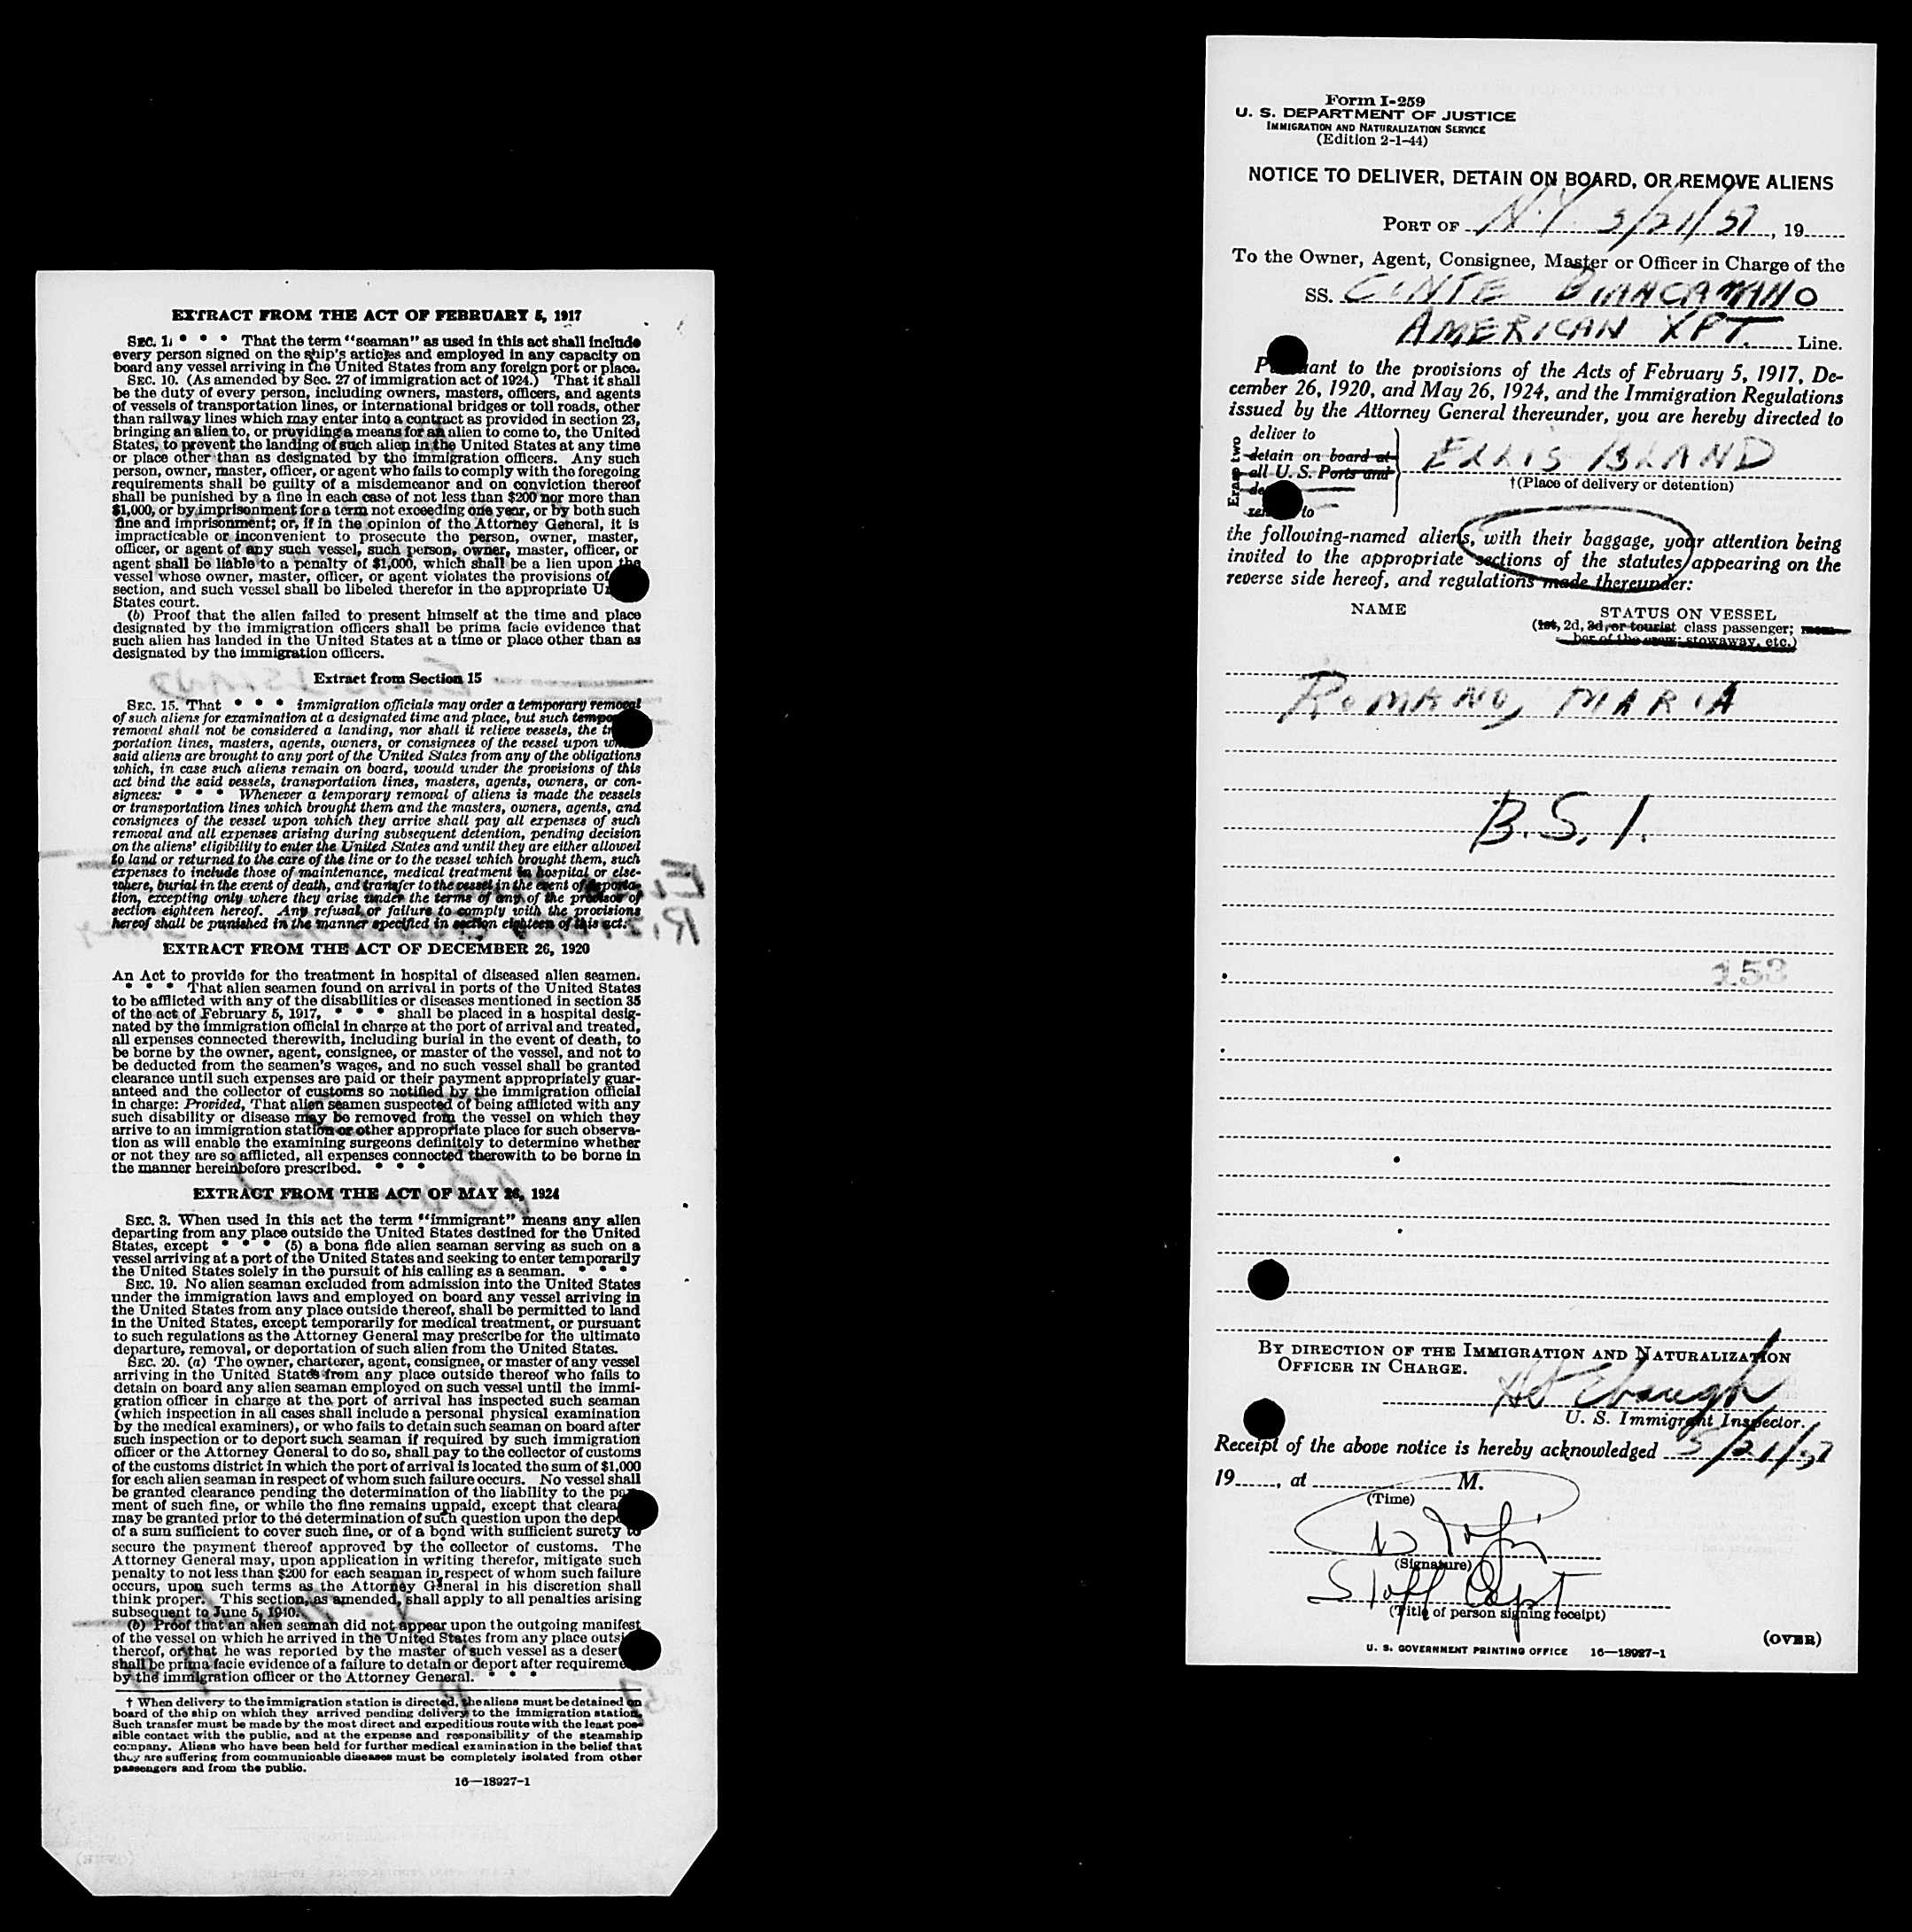 EXTRACT FROM THE ACT OF FEBRUARY 5, 1917
SEC. 1. * * * That the term "seaman" as used in this act shall include
every person signed on the ship's articles and employed in any capacity on
board any vessel arriving in the United States from any foreign port or place.
SEC. 10. (As amended by Sec. 27 of immigration act of 1924.) That it shall
be the duty of every person, including owners, masters, officers, and agents
of vessels of transportation lines, or international bridges or toll roads, other
than railway lines which may enter into a contract as provided in section 23,
bringing an alien to, or providing a means for an alien to come to, the United
States, to prevent the landing of such alien in the United States at any time
or place other than as designated by the immigration officers. Any such
person, owner, master, officer, or agent who fails to comply with the foregoing
requirements shall be guilty of a misdemeanor and on conviction thereof
shall be punished by a fine in each case of not less than $200 nor more than
$1,000, or by imprisonment for a term not exceeding one year, or by both such
fine and imprisonment; or, if in the opinion of the Attorney General, it is
impracticable or inconvenient to prosecute the person, owner, master,
officer, or agent of any such vessel, such person, owner, master, officer, or
agent shall be liable to a penalty of $1,000, which shall be a lien upon the
vessel whose owner, master, officer, or agent violates the provisions of
section, and such vessel shall be libeled therefor in the appropriate
States court.
(b) Proof that the alien failed to present himself at the time and place
designated by the immigration officers shall be prima facie evidence that
such alien has landed in the United States at a time or place other than as
designated by the immigration officers.
Extract from Section 15
SEC. 15. That * * * immigration officials may order a temporary removal
of such aliens for examination at a designated time and place, but such
removal shall not be considered a landing, nor shall it relieve vessels, the
portation lines, masters, agents, owners, or consignees of the vessel upon
said aliens are brought to any port of the United States from any of the obligations
which, in case such aliens remain on board, would under the provisions of this
act bind the said vessels, transportation lines, masters, agents, owners, or con-
signees: * * * Whenever a temporary removal of aliens is made the vessels
or transportation lines which brought them and the masters, owners, agents, and
consignees of the vessel upon which they arrive shall pay all expenses of such
removal and all expenses arising during subsequent detention, pending decision
on the aliens' eligibility to enter the United States and until they are either allowed
to land or returned to the care of the line or to the vessel which brought them, such
expenses to include those of maintenance, medical treatment in hospital or else-
where, burial in the event of death, and transfer to the vessel in the event of deporta-
tion, excepting only where they arise under the terms of any of the provisos of
section eighteen hereof. Any refusal or failure to comply with the provisions
hereof shall be punished in the manner specified in section eighteen of this act.
EXTRACT FROM THE ACT OF DECEMBER 26, 1920
An Act to provide for the treatment in hospital of diseased alien seamen.
* * * That alien seamen found on arrival in ports of the United States
to be afflicted with any of the disabilities or diseases mentioned in section 35
of the act of February 5, 1917, * * * shall be placed in a hospital desig-
nated by the immigration official in charge at the port of arrival and treated,
all expenses connected therewith, including burial in the event of death, to
be borne by the owner, agent, consignee, or master of the vessel, and not to
be deducted from the seamen's wages, and no such vessel shall be granted
clearance until such expenses are paid or their payment appropriately guar-
anteed and the collector of customs so notified by the immigration official
in charge: Provided, That alien seamen suspected of being afflicted with any
such disability or disease may be removed from the vessel on which they
arrive to an immigration station or other appropriate place for such observa-
tion as will enable the examining surgeons definitely to determine whether
or not they are so afflicted, all expenses connected therewith to be borne in
the manner hereinbefore prescribed. * * *
EXTRACT FROM THE ACT OF MAY 26, 1924
SEC. 3. When used in this act the term "immigrant" means any alien
departing from any place outside the United States destined for the United
States, except * * * (5) a bona fide alien seaman serving as such on a
vessel arriving at a port of the United States and seeking to enter temporarily
the United States solely in the pursuit of his calling as a seaman. * * *
SEC. 19. No alien seaman excluded from admission into the United States
under the immigration laws and employed on board any vessel arriving in
the United States from any place outside thereof, shall be permitted to land
in the United States, except temporarily for medical treatment, or pursuant
to such regulations as the Attorney General may prescribe for the ultimate
departure, removal, or deportation of such alien from the United States.
SEC. 20. (a) The owner, charterer, agent, consignee, or master of any vessel
arriving in the United States from any place outside thereof who fails to
detain on board any alien seaman employed on such vessel until the immi-
gration officer in charge at the port of arrival has inspected such seaman
(which inspection in all cases shall include a personal physical examination
by the medical examiners), or who fails to detain such seaman on board after
such inspection or to deport such seaman if required by such immigration
officer or the Attorney General to do so, shall pay to the collector of customs
of the customs district in which the port of arrival is located the sum of $1,000
for each alien seaman in respect of whom such failure occurs. No vessel shall
be granted clearance pending the determination of the liability to the pay-
ment of such fine, or while the fine remains unpaid, except that
may be granted prior to the determination of such question upon the
of a sum sufficient to cover such fine, or of a bond with sufficient surety to
secure the payment thereof approved by the collector of customs. The
Attorney General may, upon application in writing therefor, mitigate such
penalty to not less than $200 for each seaman in respect of whom such failure
occurs, upon such terms as the Attorney General in his discretion shall
think proper. This section, as amended, shall apply to all penalties arising
subsequent to June 5, 1940.
(b) Proof that an alien seaman did not appear upon the outgoing manifest
of the vessel on which he arrived in the United States from any place
thereof, or that he was reported by the master of such vessel as a
shall be prima facie evidence of a failure to detain or deport after
by the immigration officer or the Attorney General. * * *
† When delivery to the immigration station is directed, the aliens must be detained on
board of the ship on which they arrived pending delivery to the immigration station.
Such transfer must be made by the most direct and expeditious route with the least pos-
sible contact with the public, and at the expense and responsibility of the steamship
company. Aliens who have been held for further medical examination in the belief that
they are suffering from communicable diseases must be completely isolated from other
passengers and from the public.
16—18927-1
Form I-259
U. S. DEPARTMENT OF JUSTICE
IMMIGRATION AND NATURALIZATION SERVICE
(Edition 2-1-44)
NOTICE TO DELIVER, DETAIN ON BOARD, OR REMOVE ALIENS
PORT OF N.Y. 5/21/57, 19
To the Owner, Agent, Consignee, Master or Officer in Charge of the
SS. CONTE BIANCAMANO
AMERICAN XPT. Line.
Pursuant to the provisions of the Acts of February 5, 1917, De-
cember 26, 1920, and May 26, 1924, and the Immigration Regulations
issued by the Attorney General thereunder, you are hereby directed to
Erase two
deliver to
detain on board at
all U. S. Ports and
to
ELLIS ISLAND
†(Place of delivery or detention)
the following-named aliens, with their baggage, your attention being
invited to the appropriate sections of the statutes appearing on the
reverse side hereof, and regulations made thereunder:
NAME STATUS ON VESSEL
(1st, 2d, 3d, or tourist class passenger; mem-
ber of the crew; stowaway, etc.)
ROMANO, MARIA
B.S.I.
153
BY DIRECTION OF THE IMMIGRATION AND NATURALIZATION
OFFICER IN CHARGE.
U. S. Immigrant Inspector.
Receipt of the above notice is hereby acknowledged 5/21/57
19, at M.
(Time)
(Signature)
Staff Capt
(Title of person signing receipt)
U. S. GOVERNMENT PRINTING OFFICE 16—18927-1
(OVER)